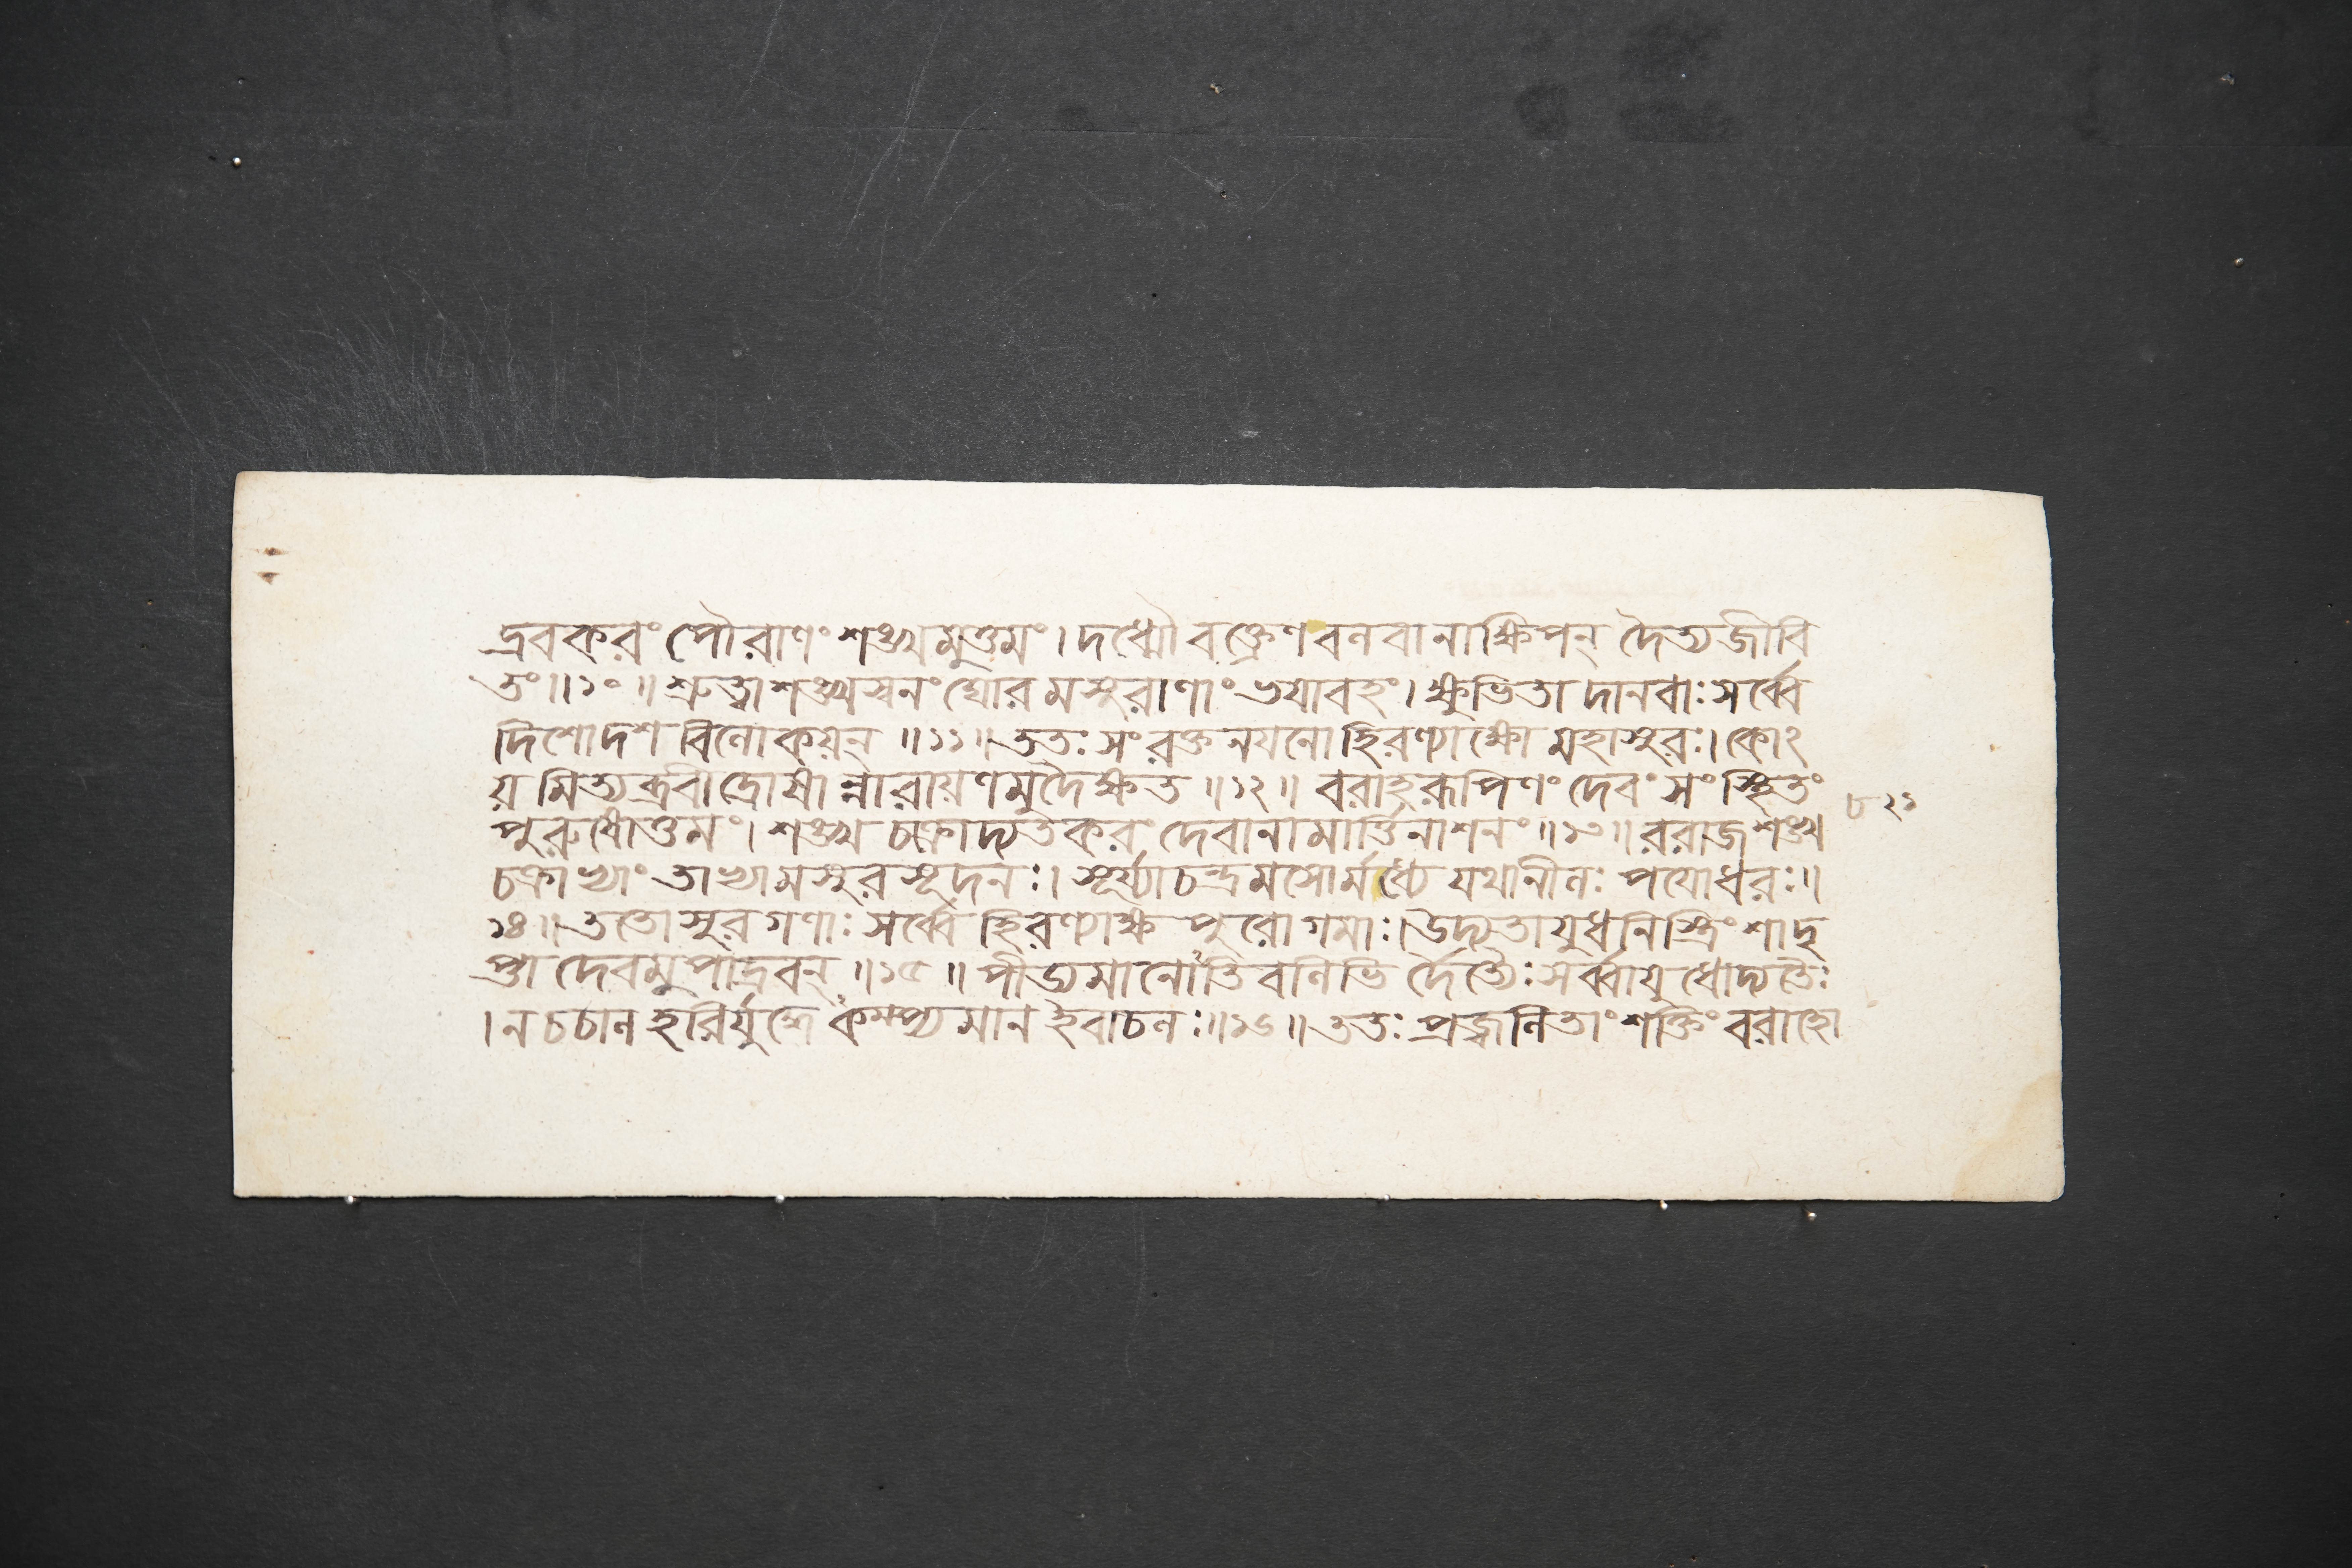 দ্রবকরং পৌরাণং শঙ্খমুত্তমং। দধ্মৌ বক্ত্রেণ বলবানাক্ষিপন্ দৈত্যজীবি
তং॥১০॥ শ্রুত্বা শঙ্খস্বনং ঘোরমসুরাণাং ভয়াবহং। ক্ষুভিতা দানবাঃ সর্ব্বে
দিশোদশ বিলোকয়ন্ ॥১১॥ ততঃ সংরক্তনয়নো হিরণ্যাক্ষো মহাসুরঃ। কোঽ
য়মিত্যব্রবীদ্রোষান্নারায়ণমুদৈক্ষত ॥১২॥ বরাহরূপিণং দেবং সংস্থিতং
পুরুষোত্তমং। শঙ্খ চক্রোদ্যতকরং দেবানামার্ত্তিনাশনং ॥১৩॥ ররাজ শঙ্খ
চক্রাভ্যাং তাভ্যামসুরসূদনঃ। সূর্য্যাচন্দ্রমসোর্ম্মধ্যে যথানীলঃ পয়োধরঃ॥
১৪॥ ততোসুরগণাঃ সর্ব্বে হিরণ্যাক্ষ পুরোগমাঃ। উদ্যতায়ুধনিস্ত্রিংশাদৃ
প্তা দেবমুপাদ্রবন্ ॥১৫॥ পীড্যমানোঽতিবলিভি র্দৈত্যৈঃ সর্ব্বায়ুধোদ্যতৈঃ
। ন চচাল হরির্যুদ্ধেঽকম্প্যমান ইবাচলঃ॥১৬॥ ততঃ প্রজ্বলিতাং শক্তিং বরাহো
৮২১